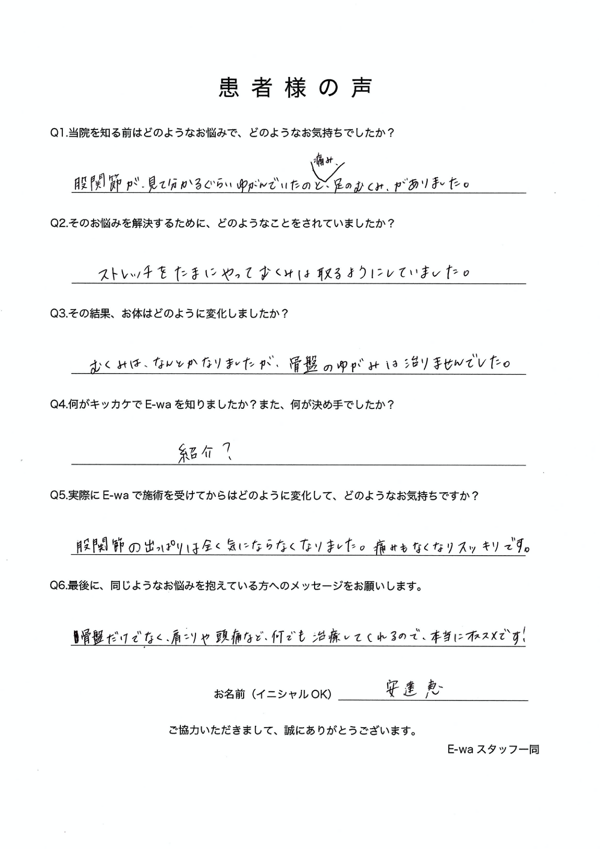 患者様の声
Q1.当院を知る前はどのようなお悩みで、どのようなお気持ちでしたか？
痛み、
股関節が、見て分かるぐらいゆがんでいたのと、足のむくみ、がありました。
Q2.そのお悩みを解決するために、どのようなことをされていましたか？
ストレッチをたまにやってむくみは取るようにしていました。
Q3.その結果、お体はどのように変化しましたか？
むくみは、なんとかなりましたが、骨盤のゆがみは治りませんでした。
Q4.何がキッカケでE-waを知りましたか？また、何が決め手でしたか？
紹介？
Q5.実際にE-waで施術を受けてからはどのように変化して、どのようなお気持ちですか？
股関節の出っぱりは全く気にならなくなりました。痛みもなくなりスッキリです。
Q6.最後に、同じようなお悩みを抱えている方へのメッセージをお願いします。
骨盤だけでなく、肩こりや頭痛など、何でも治療してくれるので、本当にオススメです！
お名前（イニシャルOK） 安達 恵
ご協力いただきまして、誠にありがとうございます。
E-waスタッフ一同